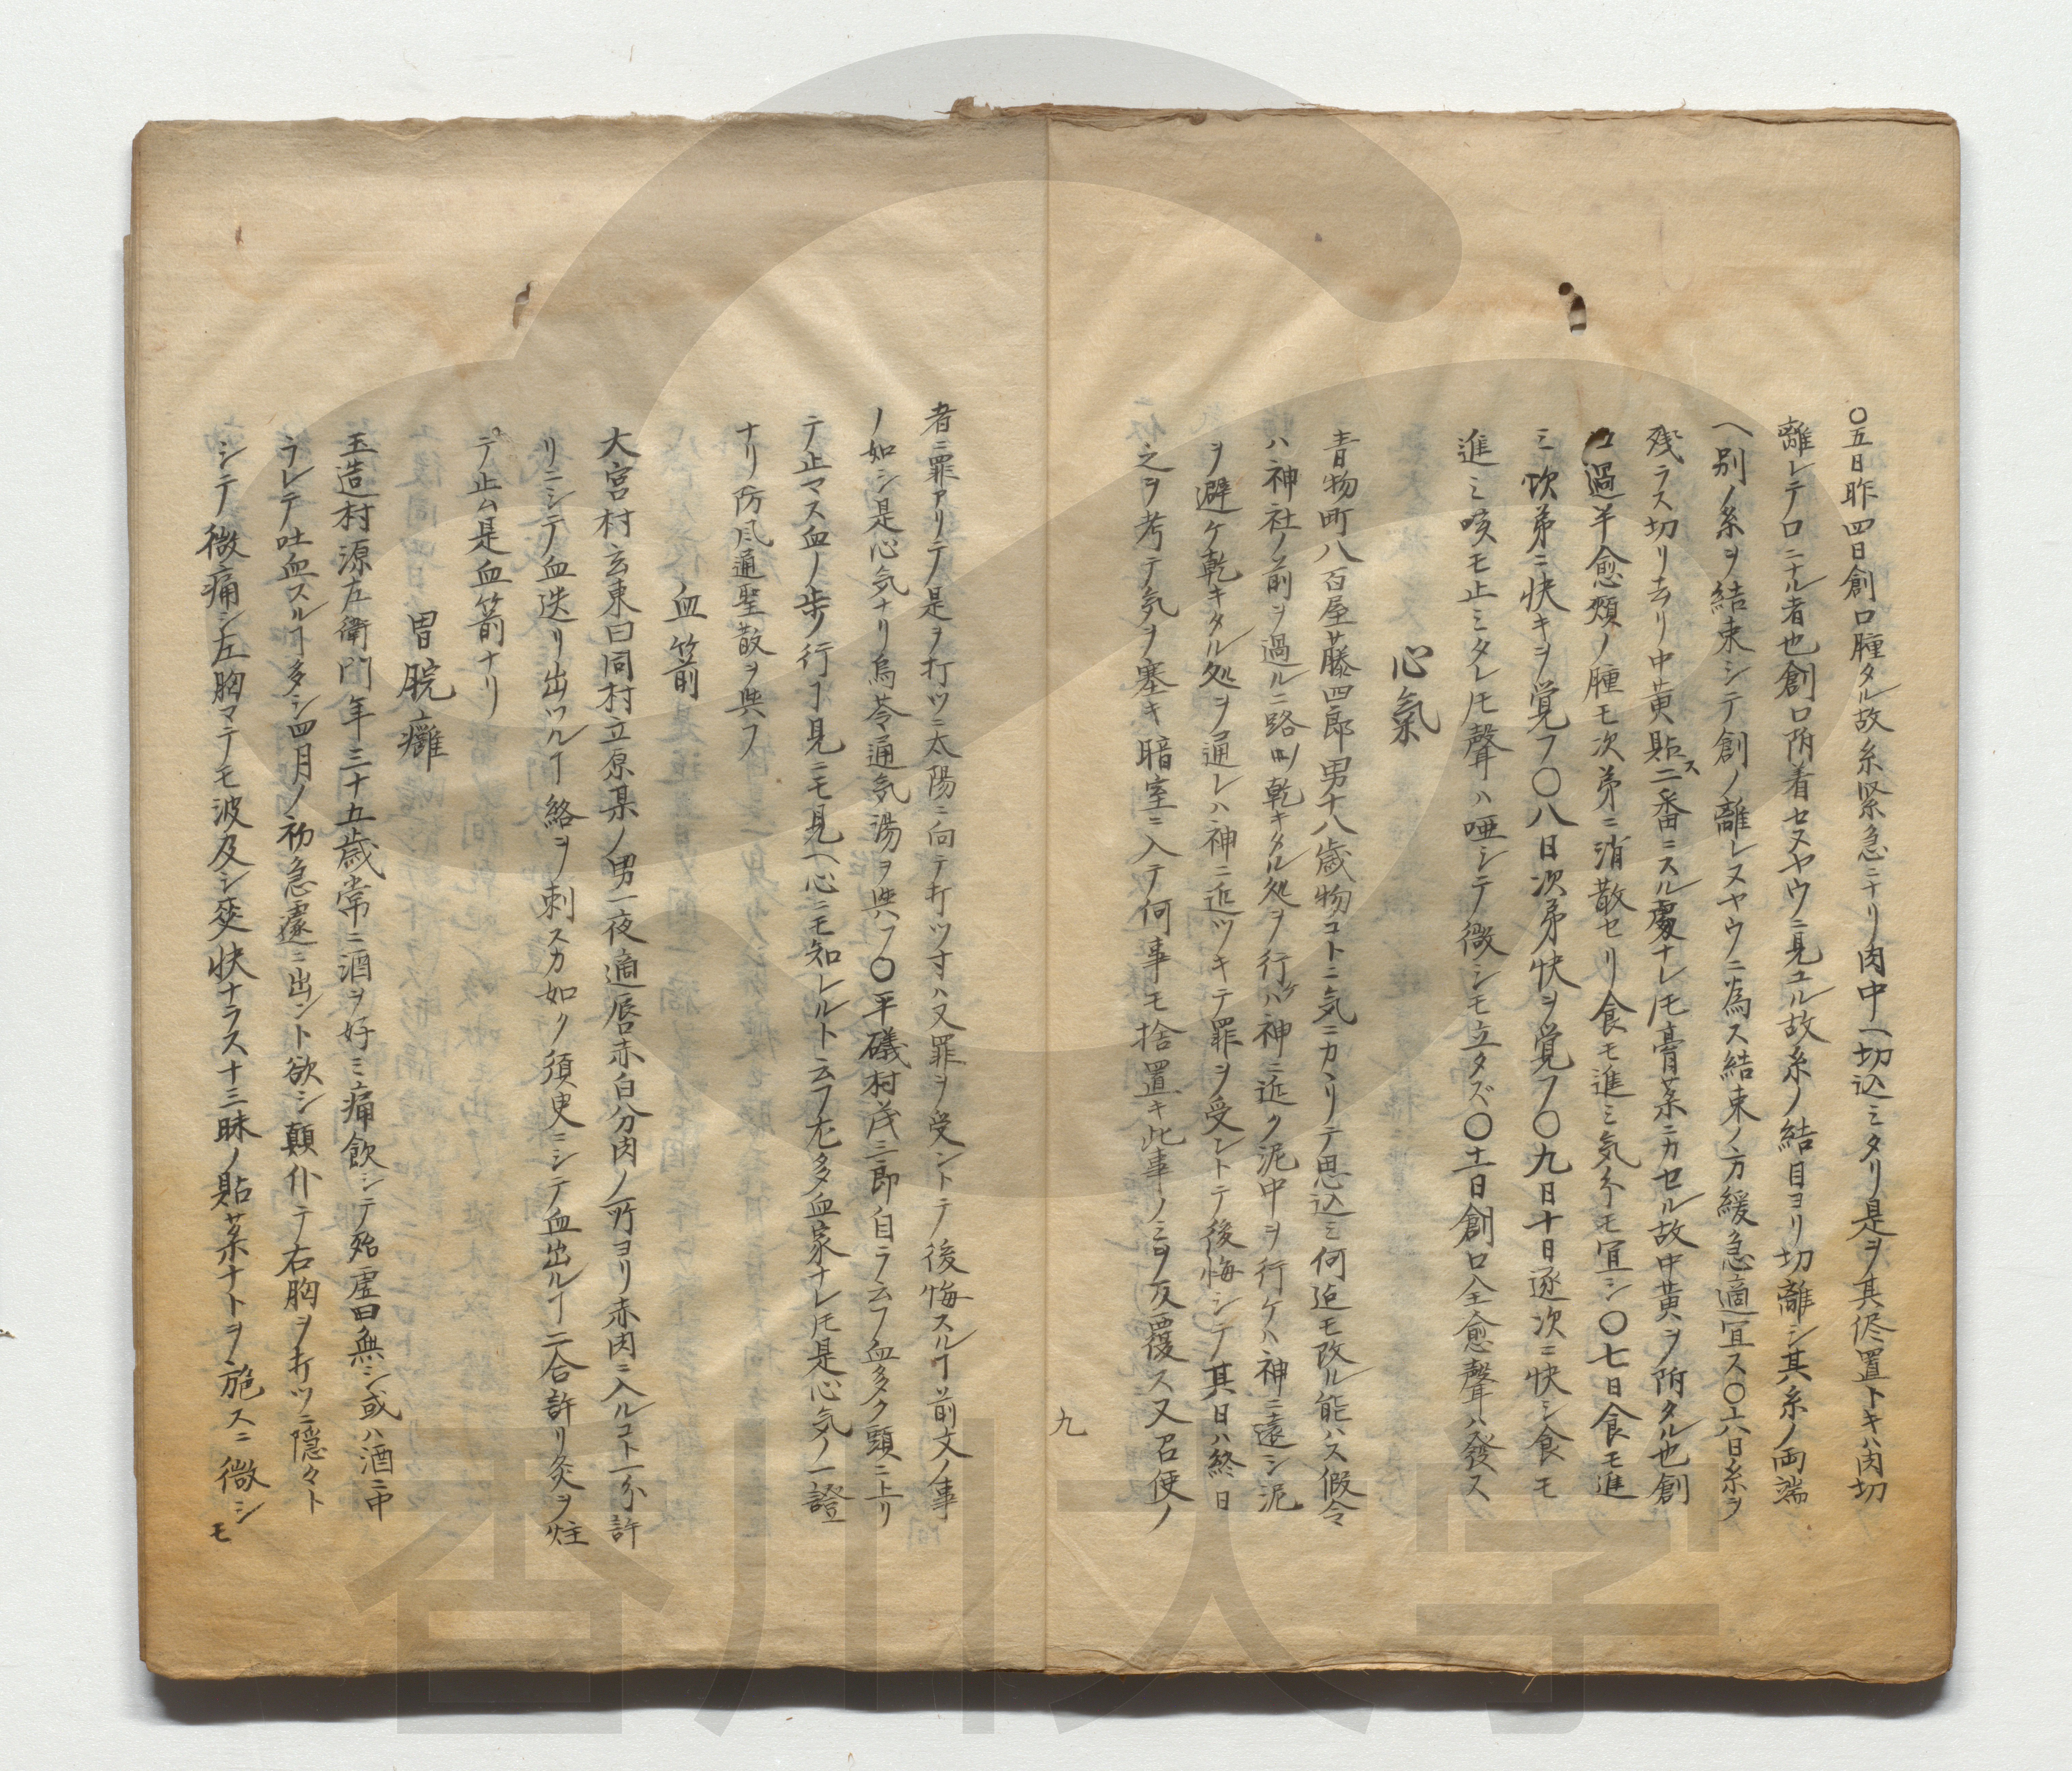 〇五日昨四日創口腫タル故糸緊急ニナリ肉中ヘ切込ミタリ是ヲ其侭置トキハ肉切
離レテ口ニナル者也創口附着セヌヤウニ見ユル故糸ノ結目ヨリ切離シ其糸ノ両端
ヘ別ノ糸ヲ結束シテ創ノ離レヌヤウニ為ス結束ノ方緩急適宜ス〇六日糸ヲ
残ラス切リ去リ中黄貼ス二番ニスル処ナレ𪜈膏薬ニカセル故中黄ヲ附タル也創
口過半愈頬ノ腫モ次第ニ消散セリ食モ進ミ気分モ宜シ〇七日食モ進
ミ欬第ニ快キヲ覚フ〇八日次第快ヲ覚フ〇九日十日逐次ニ快シ食モ
進ミ咳モ止ミタレ𪜈聲ハ唖シテ微シモ立タズ〇十一日創口全愈聲ハ發ス
心氣
青物町八百屋藤四郎男十八歳物コトニ気ニカヽリテ思込ミ何迠モ改ル能ハス假令
ハ神社ノ前ヲ過ルニ路乾キタル処ヲ行ケハ神ニ近ク泥中ヲ行ケハ神ニ遠シ泥
ヲ避ケ乾キタル処ヲ通レハ神ニ近ツキテ罪ヲ受ントテ後悔シテ其日ハ終日
之ヲ考テ気ヲ塞キ暗室ニ入テ何事モ捨置キ此事ノミヲ反覆ス又召使ノ
九
者ニ罪アリテ是ヲ打ツニ太陽ニ向テ打ツ寸ハ又罪ヲ受ントテ後悔スルヿ前文ノ事
ノ如シ是心気ナリ烏苓通気湯ヲ與フ〇平礒村茂三郎自ラ云フ血多ク頭ニ上リ
テ止マス血ノ歩ノ行ヿ見ニモ見ヘ心ニモ知レルト云フ尤多血家ナレ𪜈是心気ノ一證
ナリ防風通聖散ヲ與フ
血箭
大宮村玄東曰同村立原某ノ男一夜適唇赤白分肉ノ所ヨリ赤肉ニ入ルコト一分許
リニシテ血迸リ出ツルヿ絡ヲ刺スカ如ク須臾ニシテ血出ルヿ二合許リ灸ヲ炷
テ止ム是血箭ナリ
胃脘癰
玉造村源左衛門年三十五歳常ニ酒ヲ好ミ痛飲シテ殆虚日無シ或ハ酒ニ中
ラレテ吐血スルヿ多シ四月ノ初急遽ニ出ント欲シ顛仆テ右胸ヲ打ツニ隠々ト
シテ微痛シ左胸マテモ波及シ爽快ナラス十三味ノ貼薬ナトヲ施スニ微シモ